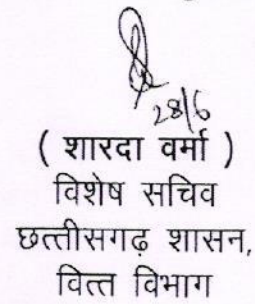 28/6
( शारदा वर्मा )
विशेष सचिव
छत्तीसगढ़ शासन,
वित्त विभाग